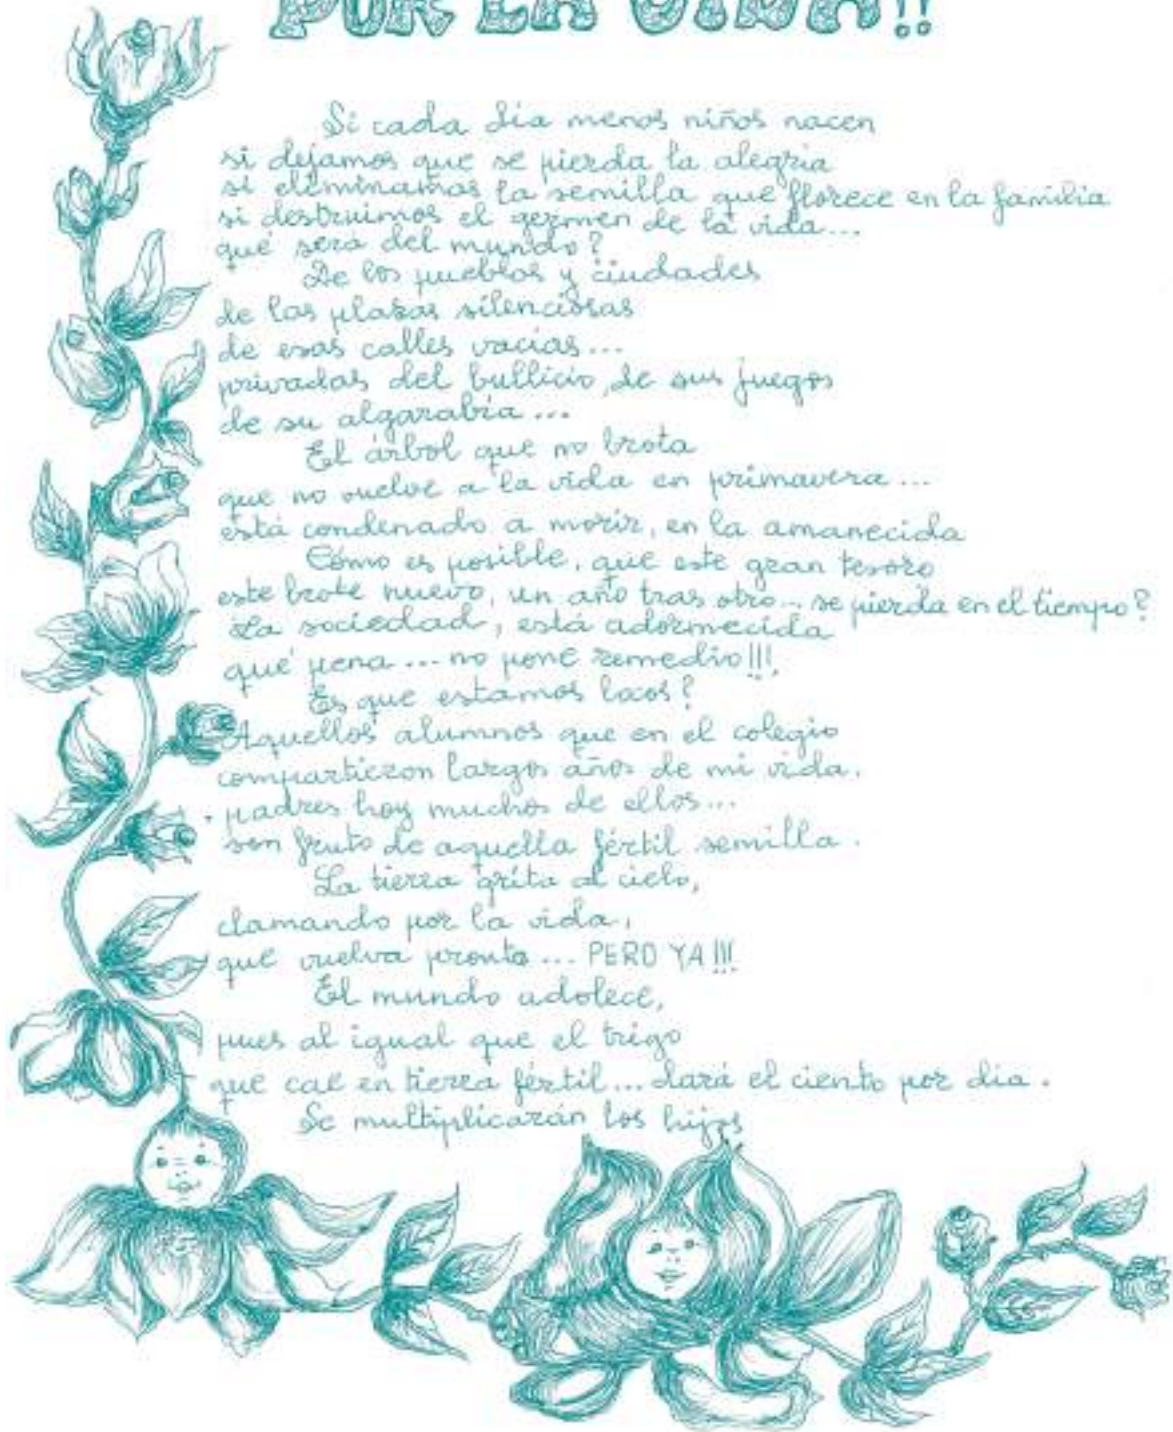 POR LA VIDA!!
Si cada dia menos niños nacen
si dejamos que se pierda la alegria
si eliminamos la semilla que florece en la familia
si destruimos el germen de la vida...
qué será del mundo?
De los pueblos y ciudades
de las plazas silenciosas
de esas calles vacias...
privadas del bullicio, de sus juegos
de su algarabia...
El árbol que no brota
que no vuelve a la vida en primavera...
está condenado a morir, en la amanecida
Cómo es posible, que este gran tesoro
este brote nuevo, un año tras otro... se pierda en el tiempo?
La sociedad, está adormecida
qué pena... no pone remedio!!!
Es que estamos locos?
Aquellos alumnos que en el colegio
compartieron largos años de mi vida.
padres hoy muchos de ellos...
son fruto de aquella fértil semilla.
La tierra grita al cielo,
clamando por la vida,
que vuelva pronto... PERO YA!!!
El mundo adolece,
pues al igual que el trigo
que cae en tierra fértil... dará el ciento por dia.
Se multiplicarán los hijos